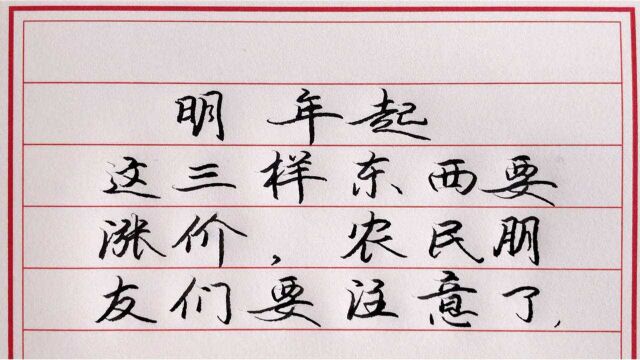 明年起
这三样东西要
涨价，农民朋
友们要注意了，